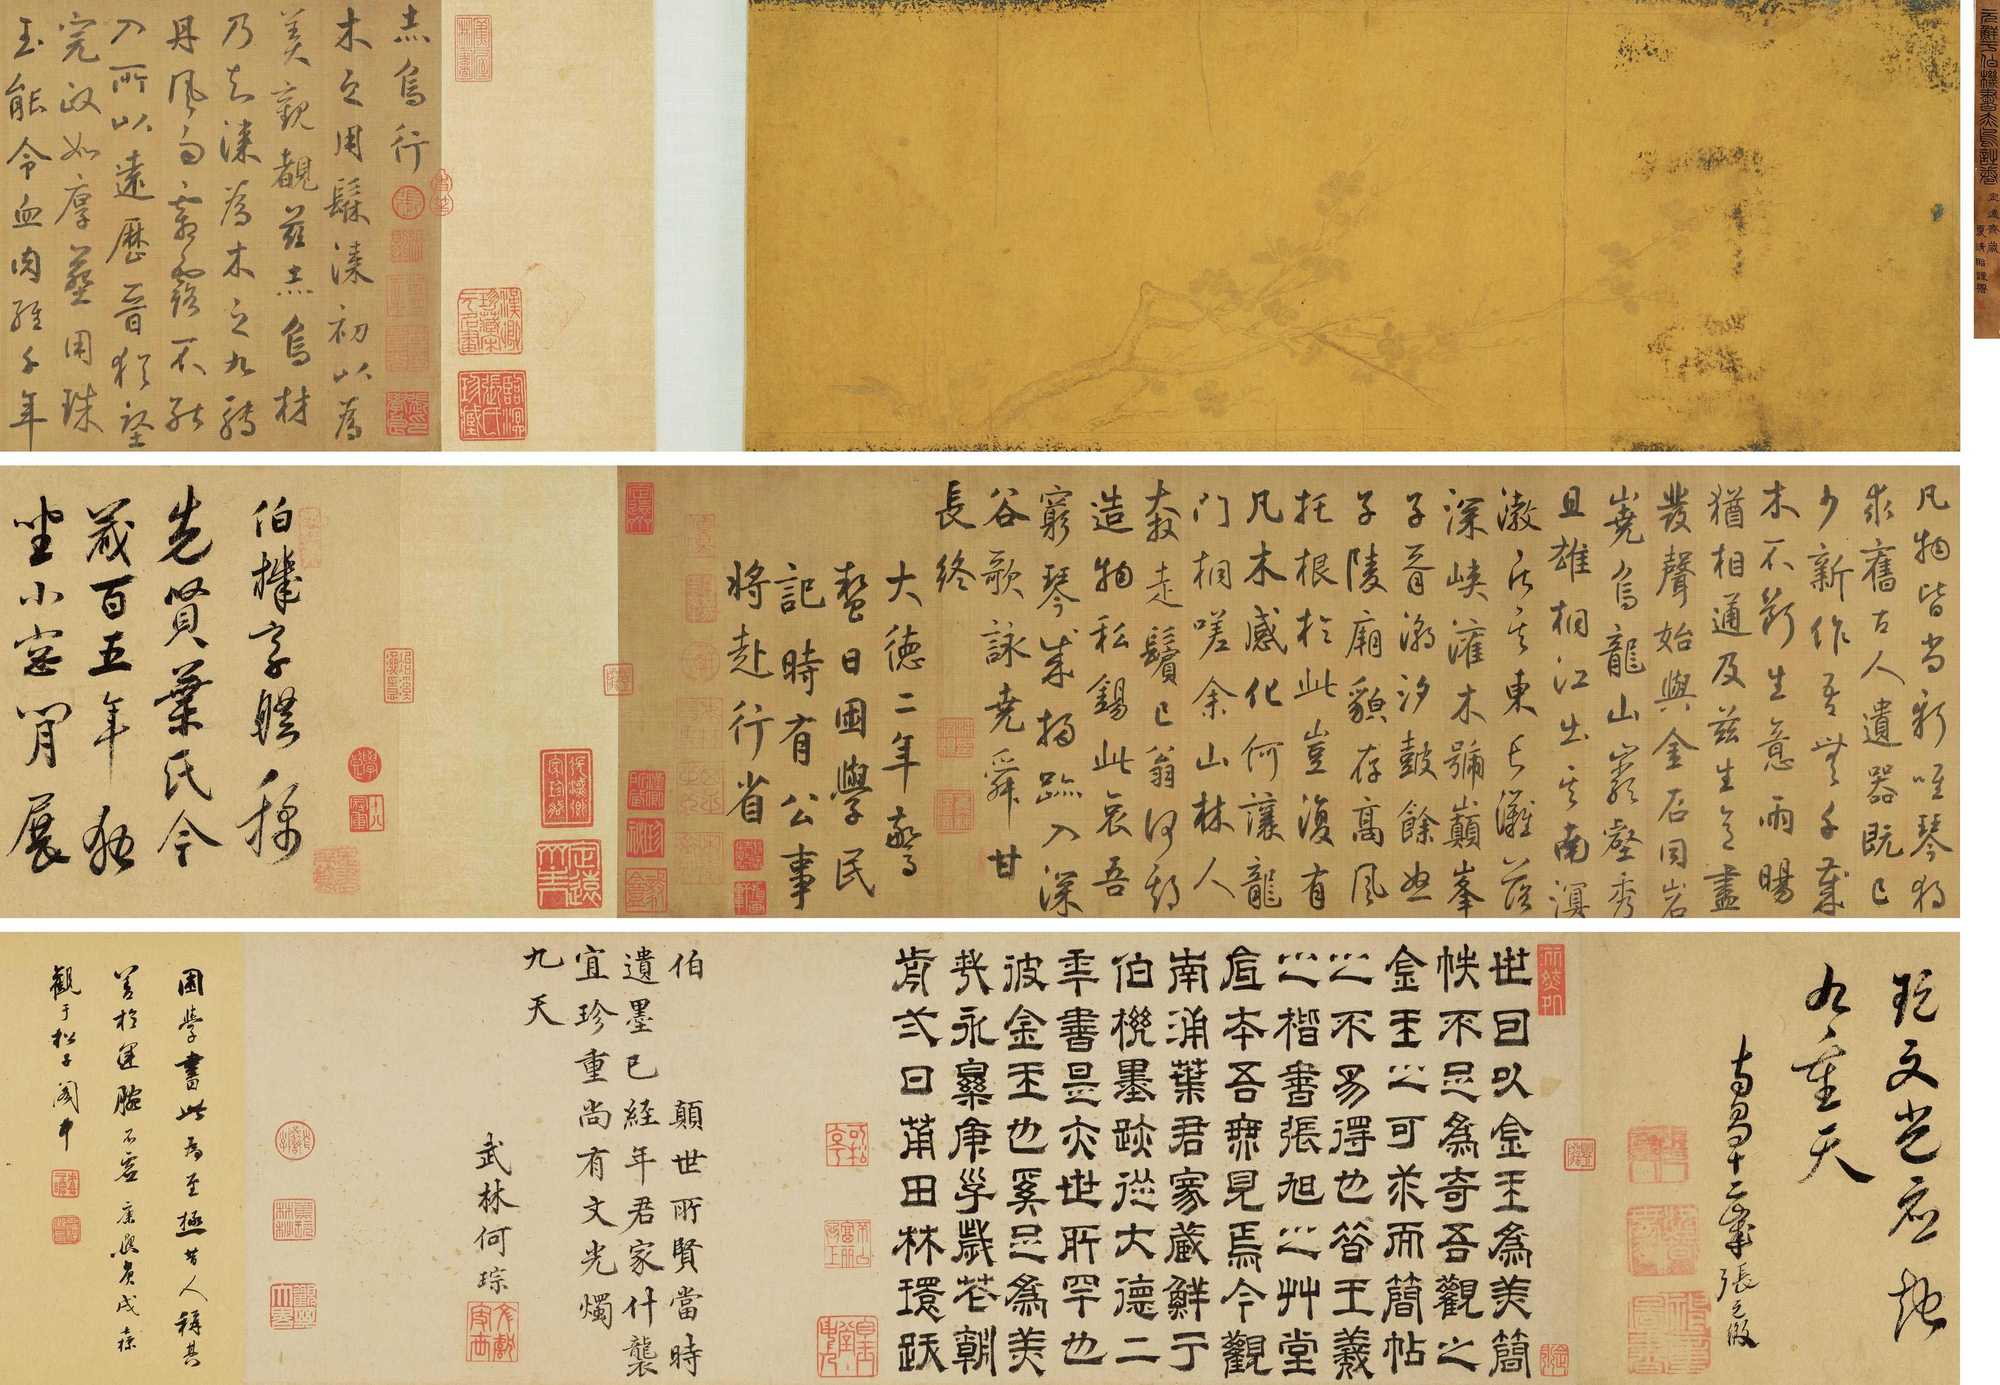 元鮮于伯機書赤烏詩卷
赤烏行
木之用髹漆初以為
美觀覩茲赤烏材
乃知漆為木之九轉
丹風雨霧露不能
入所以遠歷晉猶堅
完政如摩蒸用珠
玉能令血肉經千年
凡物皆尚新唯琴獨
求舊古人遺器既已
少新作吾無千歲
木不斲生意雨暘
猶相通及茲生意盡
發聲始與金石同岩
嶤烏龍山巖壑秀
且雄桐江出其南濵
漱其東七灘落
深峽灌木號巔峯
子晉潮汐鼓餘怒
子陵廟貌存高風
托根於此豈復有
凡木感化何讓龍
門桐嗟余山林人
走鬢已翁何期
造物私錫此哀吾
窮琴成抱入深
谷歌詠堯舜甘
長終
大德二年驚
蟄日困學民
記時有公事
將赴行省
伯機字體稱
先賢葉氏今
藏百五年獨
坐小窗閒展
玩文光應
九重天
世曰以金玉為美簡
帙不足為奇吾觀之
金玉之可求而簡帖
之不易得也昔王羲
之楷書張旭之艸堂
真本吾無見焉今觀
南浦葉君家蔵鮮于
伯機墨跡從大德二
年書是亦世所罕也
彼金玉也奚足為美
哉永樂庚子歲花朝
前弍日莆田林環跋
伯 顛世所賢當時
遺墨已經年君家什襲
宜珍重尚有文光燭
九天
武林何琮
困學書此為至極昔人稱其
善於運腕不虛 康熙庚戌
觀于松子閣中